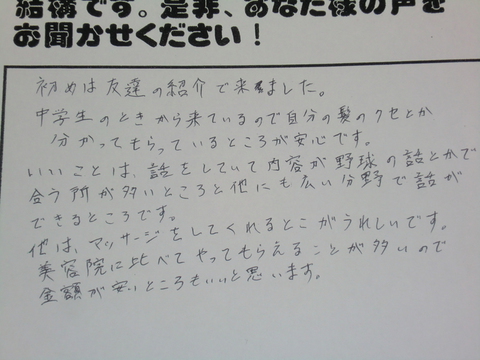 結構です。是非、あなた様の声を
お聞かせください！
初めは友達の紹介で来ました。
中学生のときから来ているので自分の髪のクセとか
分かってもらっているところが安心です。
いいことは、話をしていて内容が野球の話とかで
合う所が多いところと他にも広い分野で話が
できるところです。
他は、マッサージをしてくれるとこがうれしいです。
美容院に比べてやってもらえることが多いので
金額が安いところもいいと思います。